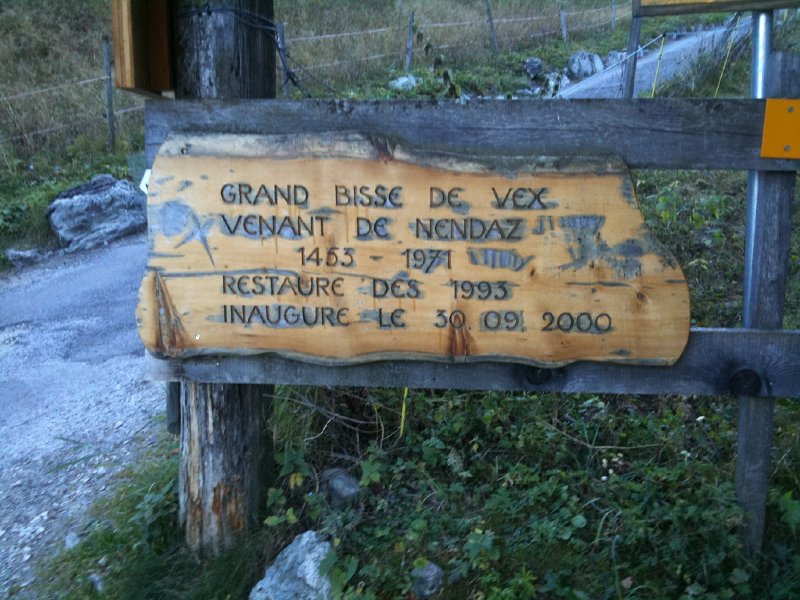 GRAND BISSE DE VEX
VENANT DE NENDAZ
1453 - 1971
RESTAURE DES 1993
INAUGURE LE 30.09.2000